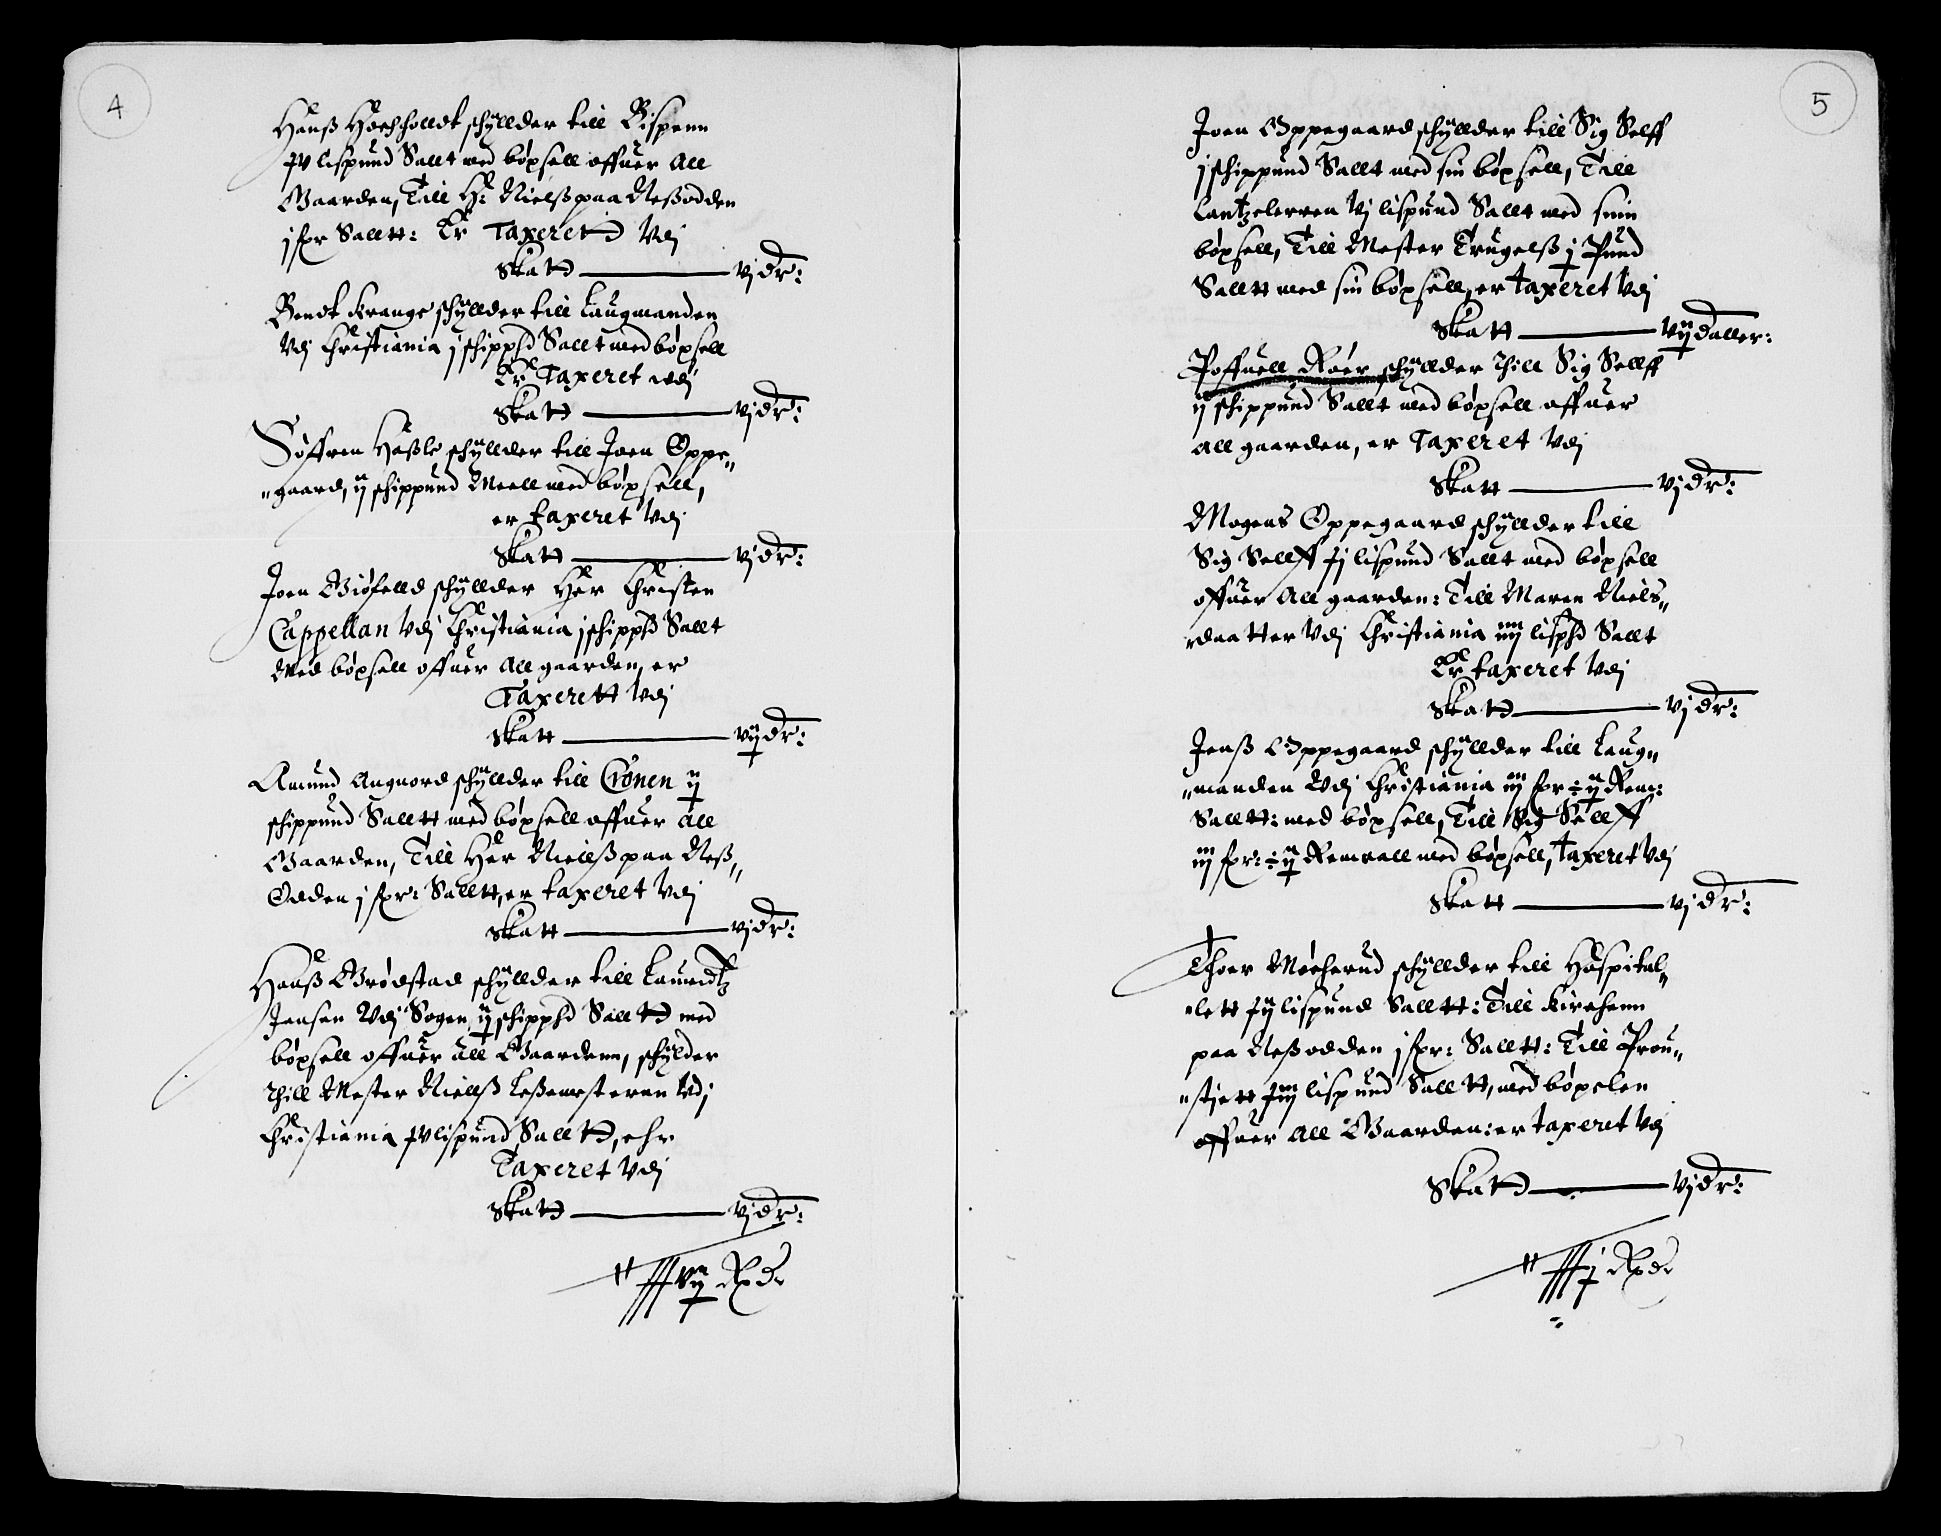 4
Hanß Hochholdt schyllder till Bispenn
xv lispund Sallt med bøxsell offuer All
Gaarden, Till Hr: Nielß paa Neßodden
j fxr Salltt: Er Taxeret Vdj
Skatt — vj dr:
Bendt Krange schyllder till Laugmanden
Vdj Christiania j schippd Sallt med bøxsell
Er Taxeret wdj
Skatt — vj dr:
Søffren Haßle schyllder till Joen Oppe„
„gaard, ij schippund Meell med bøxsell,
er taxeret Vdj
Skatt — vj dr:
Joen Giøfelld schyllder Her Christen
Cappellan Vdj Christiania j schippd Sallt
Med bøxsell offuer All gaarden, er
Taxerett Vdj
Skatt — vij dr:
Amund Angnord schyllder till Cronen ij
schippund Salltt med bøxsell offuer all
Gaarden, Till Her Nielß paa Neß„
Odden j fxr: Salltt, er taxeret Vdj
Skatt — vj dr:
Hanß Grødstad schyllder till Lauridtz
Jensen Vdj Sogen, ij schippd Salltt med
bøxsell offuer all Gaardenn, schylder
Thill Mester Nielß Leßemesteren Vdj
Christiania xv lispund Salltt, ehr
Taxeret Vdj
Skatt — vj dr:
xxxvij Rxdr
5
Joen Oppegaard schyllder till Sig Selff
j schippund Sallt med sin bøxsell, Till
Lantzclerren vj lispund Sallt med sinn
bøxsell, Till Mester Trugelß j Pund
Salltt med sin bøxsell, er taxeret Vdj
Skatt — vij daller:
Poffuell Roer schyllder Thill Sig Sellff
ij schippund Sallt med bøxsell offuer
all gaarden, er Taxeret Vdj
Skatt — vj dr:
Mogens Oppegaard schyllder till
Sig Sellff xj lispund Sallt med bøxsell
offuer All gaarden: Till Maren Niels„
„daatter Vdj Christiania iiij lispd Sallt
Er taxeret Vdj
Skatt — vj dr:
Jenß Oppegaard schyllder till Laug„
„manden Vdj Christiania iij fxr ÷ ij Rem:
Salltt: med bøxsell, Till Sig Sellff
iij fxr: ÷ ij Remall med bøxsell, taxeret Vdj
Skatt — vj dr:
Thoer Mocherud schyllder till Hospital„
„lett xij lispund Salltt: Till Kirchenn
paa Neßodden j fxr: Salltt: Till Prou„
„stiett xiij lispund Salltt, med bøxelen
offuer All Gaarden: er taxeret Vdj
Skatt — vj dr:
xxxj Rxdr